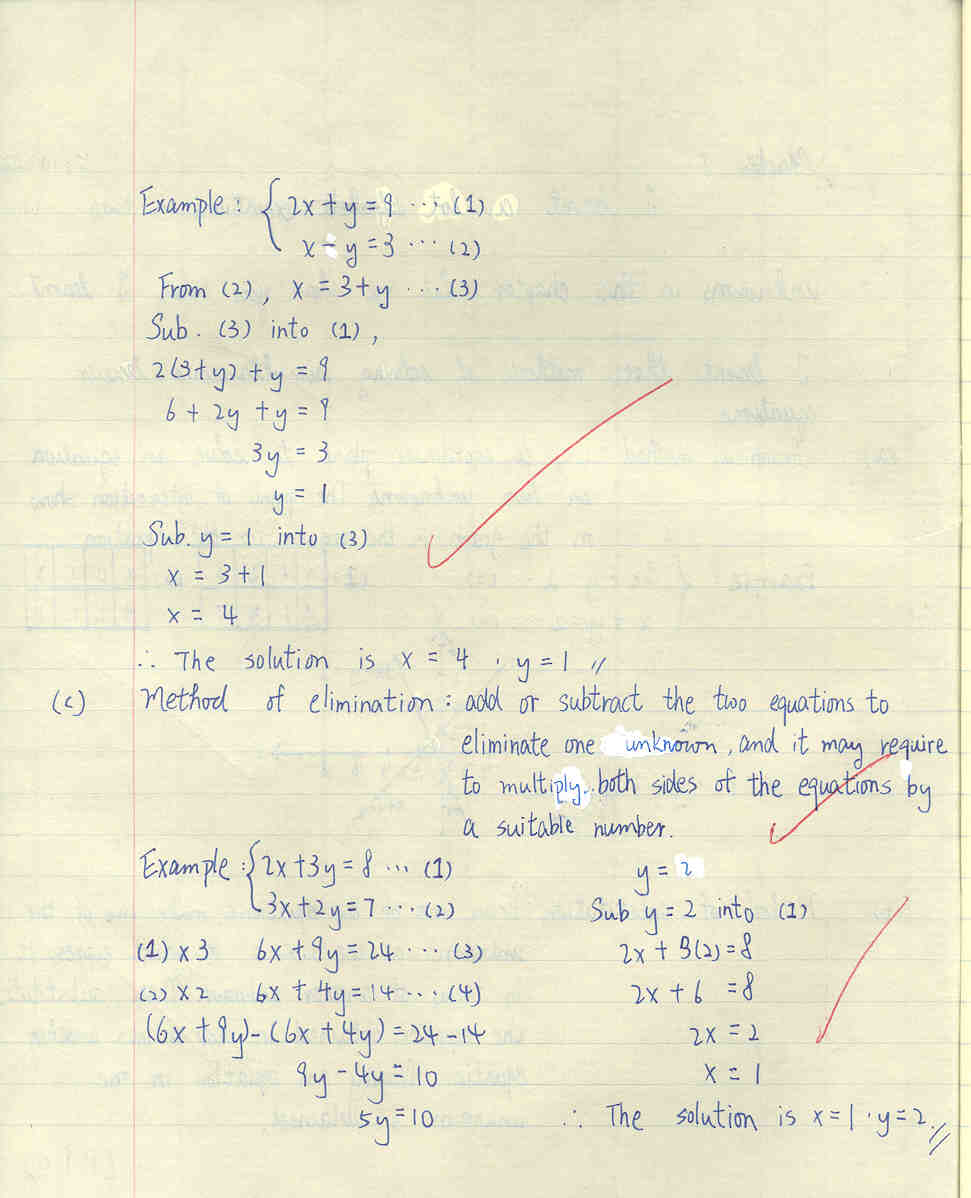 Example : { 2x + y = 9 ... (1)
x - y = 3 ... (2)
From (2), x = 3 + y ... (3)
Sub. (3) into (1),
2(3+y) + y = 9
6 + 2y + y = 9
3y = 3
y = 1
Sub. y = 1 into (3)
x = 3 + 1
x = 4
∴ The solution is x = 4 , y = 1 //
(c) Method of elimination : add or subtract the two equations to
eliminate one unknown, and it may require
to multiply both sides of the equations by
a suitable number.
Example : { 2x + 3y = 8 ... (1)
3x + 2y = 7 ... (2)
(1) x 3 6x + 9y = 24 ... (3)
(2) x 2 6x + 4y = 14 ... (4)
(6x + 9y) - (6x + 4y) = 24 - 14
9y - 4y = 10
5y = 10
y = 2
Sub y = 2 into (1)
2x + 3(2) = 8
2x + 6 = 8
2x = 2
x = 1
∴ The solution is x = 1 , y = 2 //